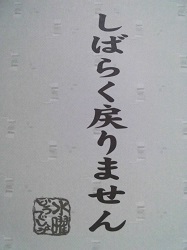 しばらく戻りません
水曜どうでしょう